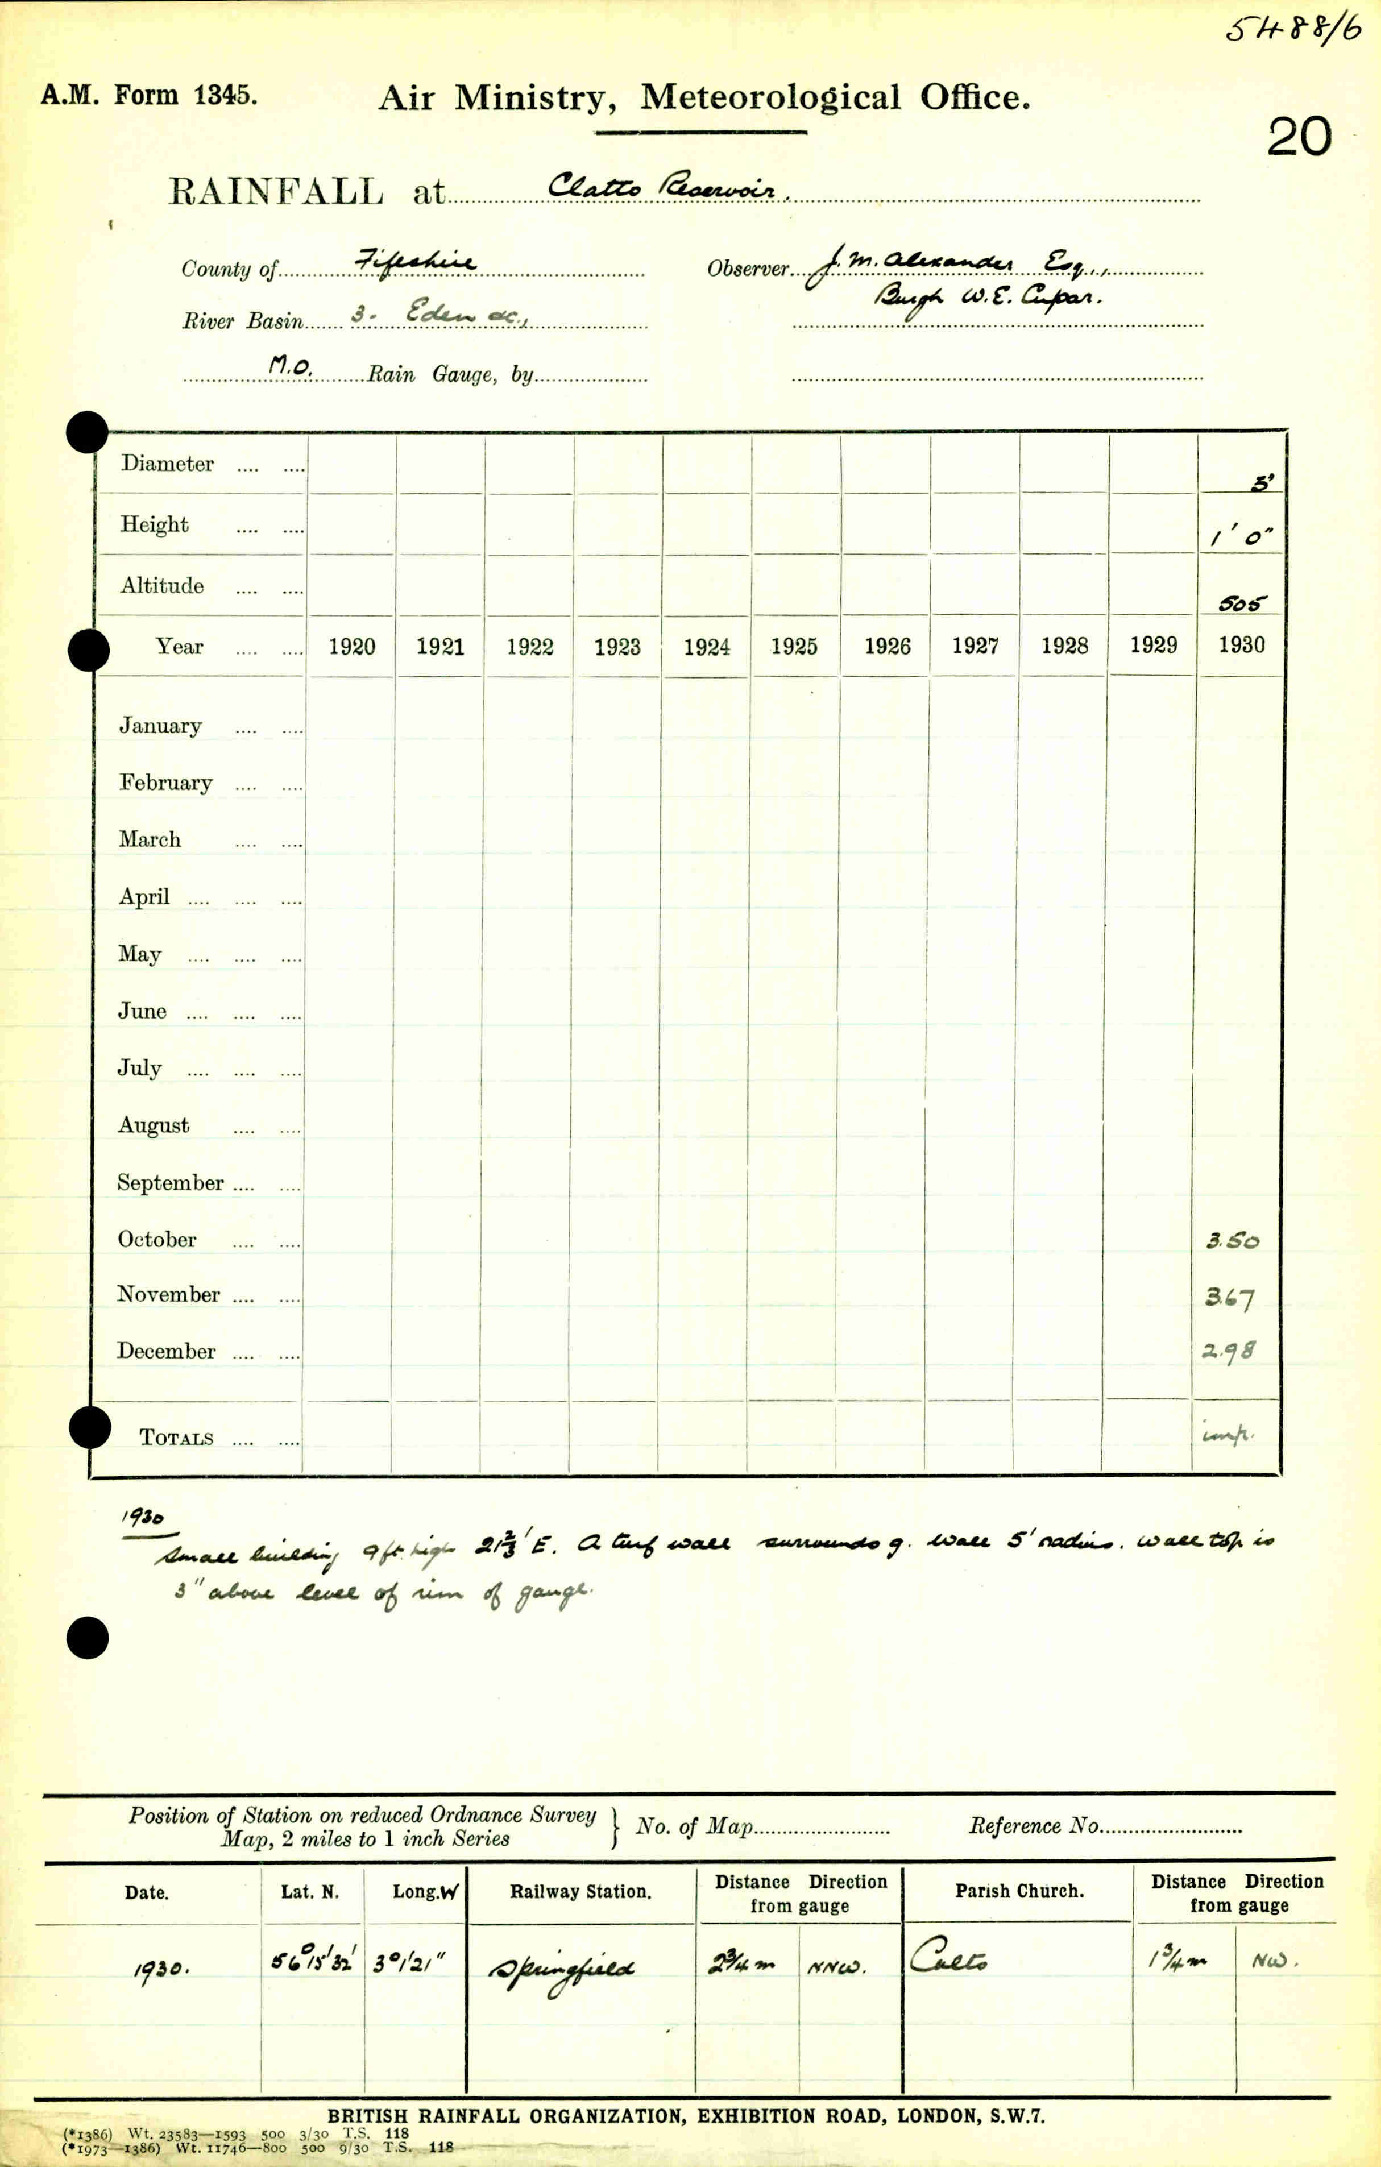 5488/6
A.M. Form 1345. Air Ministry, Meteorological Office.
20
RAINFALL at Clatto Reservoir.
County of Fifeshire Observer J. M. Alexander Esq.,
Burgh W.E. Cupar.
River Basin 3. Eden &c.,
M.O. Rain Gauge, by
Diameter .... .... 5"
Height .... .... 1' 0"
Altitude .... .... 505
Year .... .... 1920 1921 1922 1923 1924 1925 1926 1927 1928 1929 1930
January .... ....
February .... ....
March .... ....
April .... .... ....
May .... .... ....
June .... .... ....
July .... .... ....
August .... ....
September .... ....
October .... .... 3.50
November .... .... 3.67
December .... .... 2.98
TOTALS .... .... imp.
1930
Small building 9 ft. high 21⅔' E. A turf wall surrounds g. wall 5' radius. Wall top is
3" above level of rim of gauge.
Position of Station on reduced Ordnance Survey
Map, 2 miles to 1 inch Series } No. of Map Reference No.
Date. Lat. N. Long. W Railway Station. Distance Direction from gauge Parish Church. Distance Direction from gauge
1930. 56° 15' 32" 3° 1' 21" Springfield 2¾ m NNW. Cults 1¾ m NW.
BRITISH RAINFALL ORGANIZATION, EXHIBITION ROAD, LONDON, S.W.7.
(*1386) Wt. 23583—1593 500 3/30 T.S. 118
(*1973—1386) Wt. 11746—800 500 9/30 T.S. 118